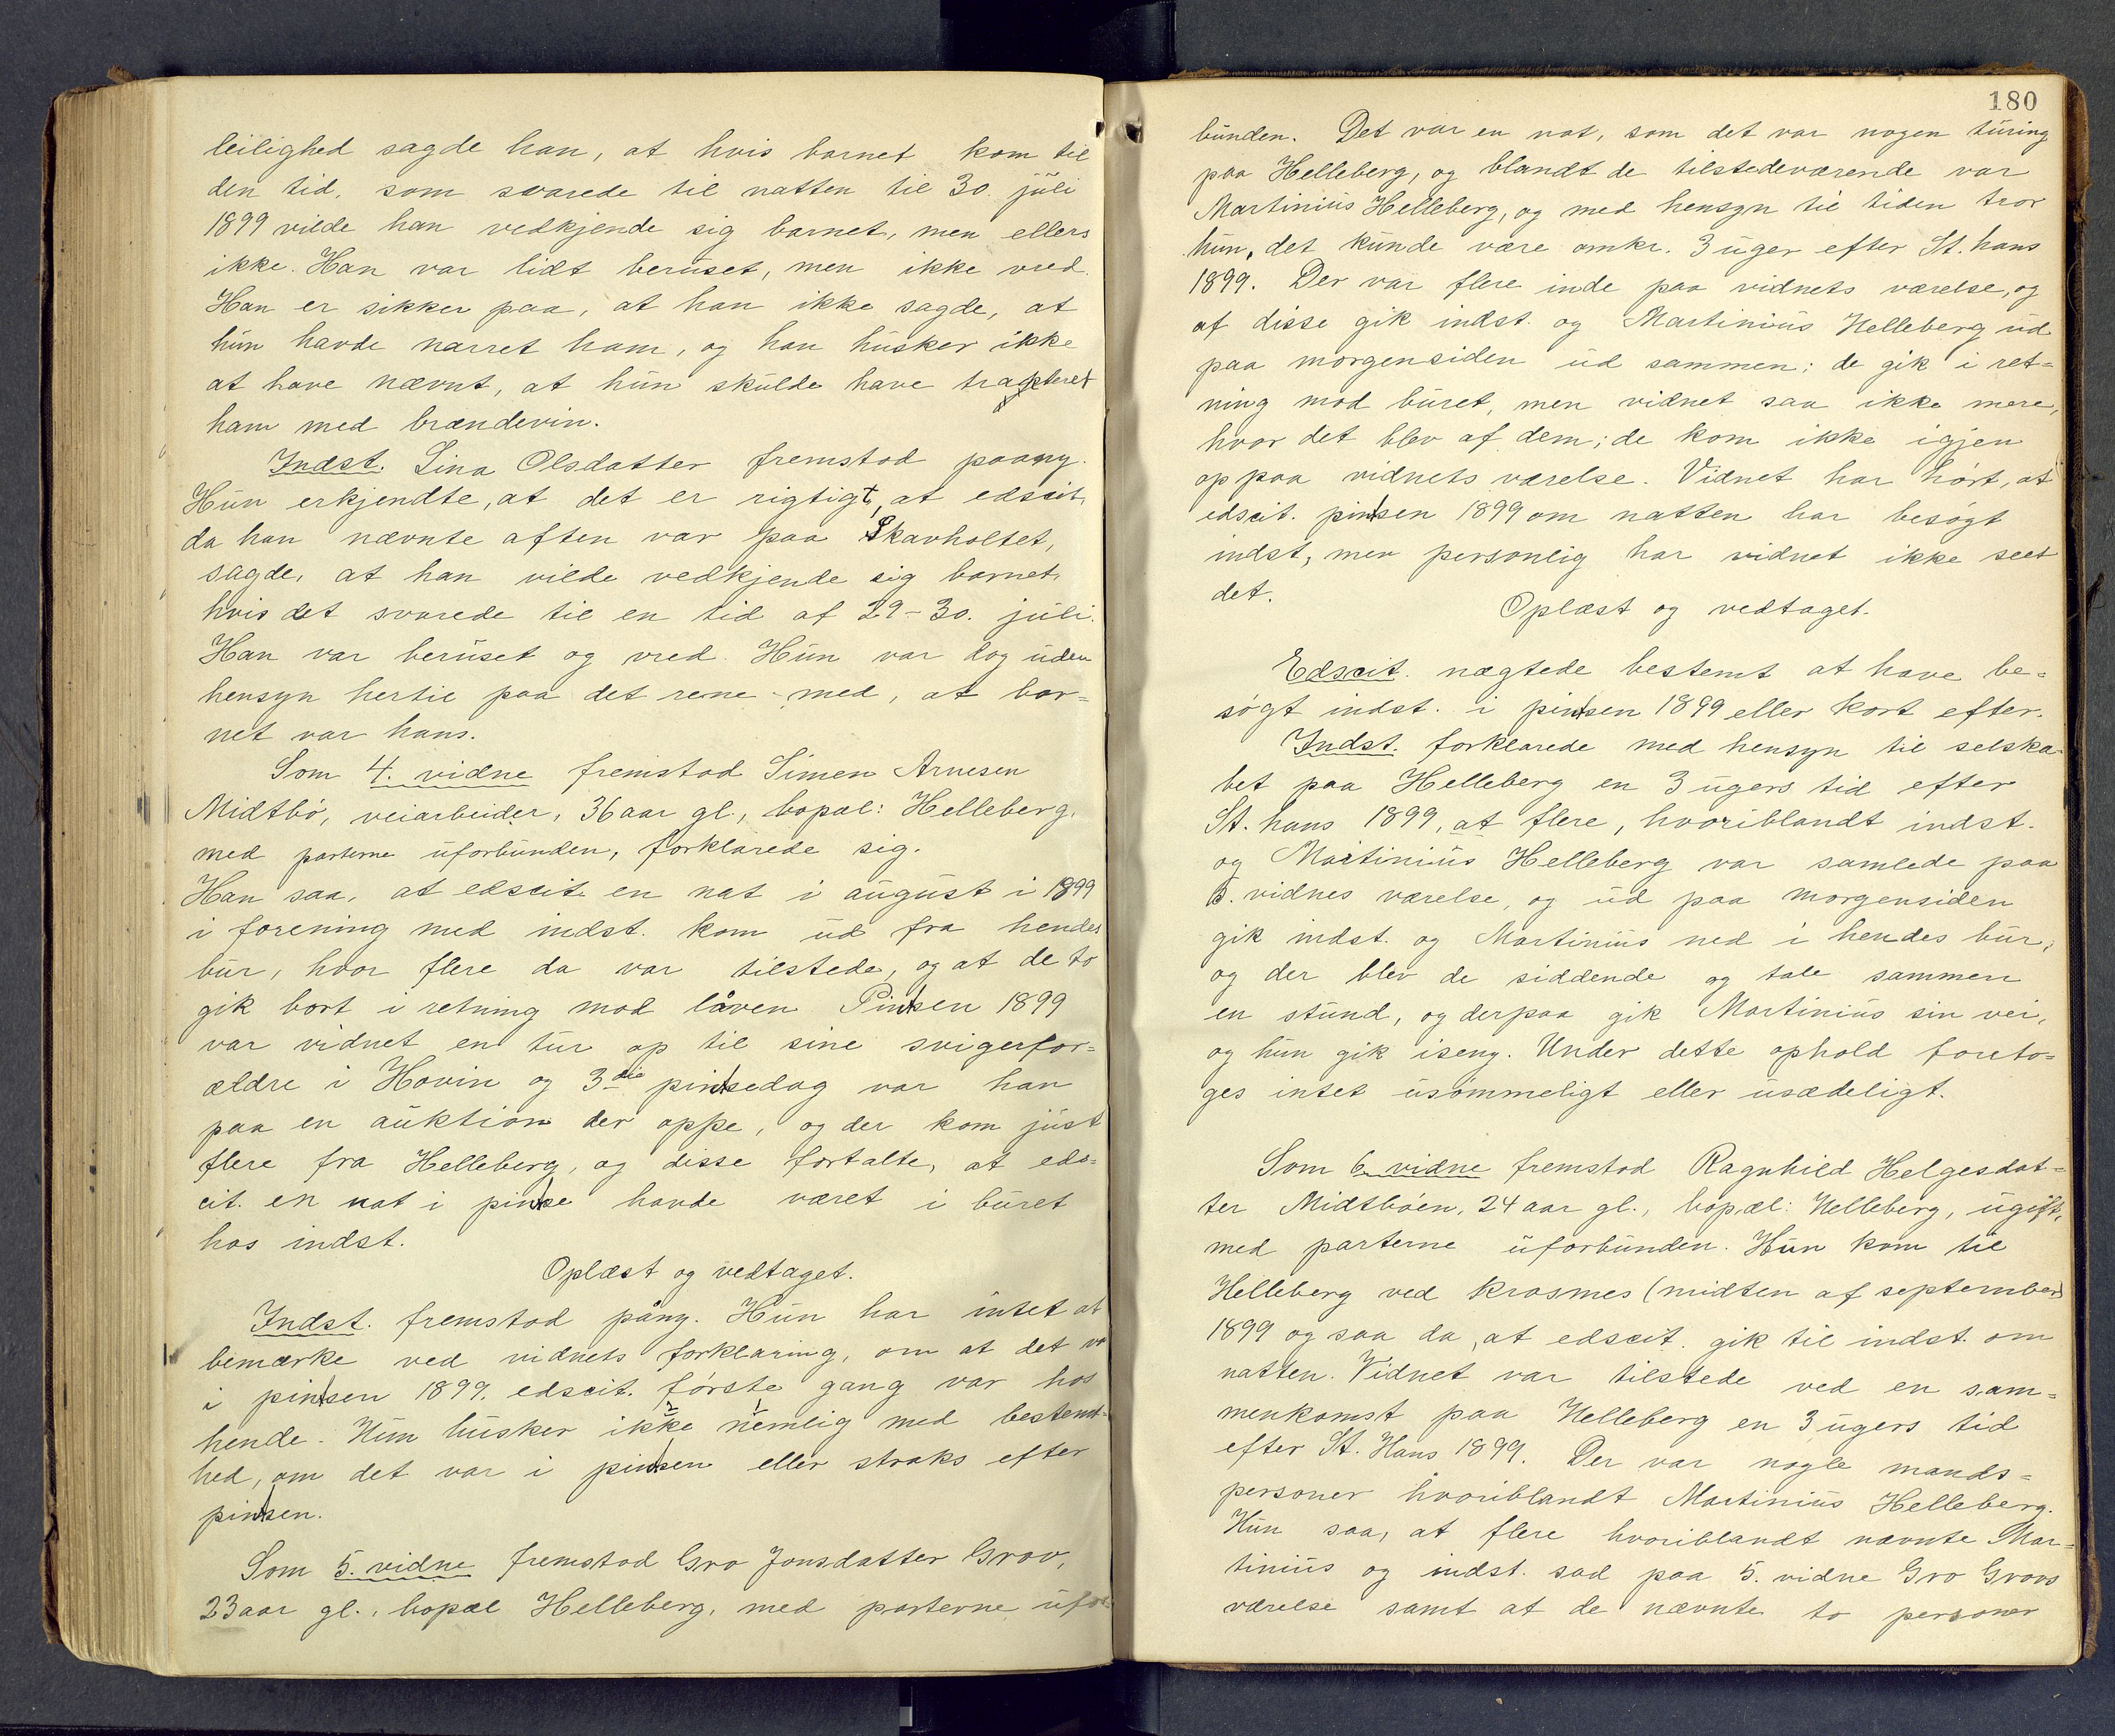 leilighed sagde han, at hvis barnet kom til
den tid, som svarede til natten til 30. juli
1899 vilde han vedkjende sig barnet, men ellers
ikke. Han var lidt beruset, men ikke vred.
Han er sikker paa, at han ikke sagde, at
hun havde narret ham, og han husker ikke
at have nævnt, at hun skulde have trakteret
ham med brændevin.
Indst. Lina Olsdatter fremstod paany.
Hun erkjendte, at det er rigtigt, at edscit.
da han nævnte aften var paa Skavholtet,
sagde, at han vilde vedkjende sig barnet,
hvis det svarede til en tid af 29-30. juli.
Han var beruset og vred. Hun var dog uden
hensyn hertil paa det rene med, at bar=
net var hans.
Som 4. vidne fremstod Simen Arnesen
Midtbö, veiarbeider, 36 aar gl., bopæl: Helleberg,
med parterne uforbunden, forklarede sig.
Han saa, at edscit. en nat i august i 1899
i forening med indst. kom ud fra hendes
bur, hvor flere da var tilstede, og at de to
gik bort i retning mod låven. Pintsen 1899
var vidnet en tur op til sine svigerfor=
ældre i Hovin og 3die pintsedag var han
paa en auktion der oppe, og der kom just
flere fra Helleberg, og disse fortalte, at eds=
cit. en nat i pintse havde været i buret
hos indst.
Oplæst og vedtaget.
Indst. fremstod påny. Hun har intet at
bemærke ved vidnets forklaring, om at det va
i pintsen 1899. edscit. förste gang var hos
hende. Hun husker ikke nemlig med bestemt=
hed, om det var i pintsen eller straks efter
pintsen.
Som 5. vidne fremstod Gro Jonsdatter Grov,
23 aar gl., bopæl Helleberg, med parterne ufor=
180
bunden. Det var en nat, som det var nogen turing
paa Helleberg, og blandt de tilstedeværende var
Martinius Helleberg, og med hensyn til tiden tror
hun, det kunde være omkr. 3 uger efter St. hans
1899. Der var flere inde paa vidnets værelse, og
af disse gik indst. og Martinius Helleberg ud
paa morgensiden ud sammen; de gik i ret=
ning mod buret, men vidnet saa ikke mere,
hvor det blev af dem; de kom ikke igjen
op paa vidnets værelse. Vidnet har hört, at
edscit. pintsen 1899 om natten har besögt
indst, men personlig har vidnet ikke seet
det.
Oplæst og vedtaget.
Edscit. nægtede bestemt at have be=
sögt indst. i pintsen 1899 eller kort efter.
Indst. forklarede med hensyn til selska=
bet paa Helleberg en 3 ugers tid efter
St. hans 1899, at flere, hvoriblandt indst.
og Martinius Helleberg var samlede paa
5. vidnes værelse, og ud paa morgensiden
gik indst. og Martinius ned i hendes bur,
og der blev de siddende og tale sammen
en stund, og derpaa gik Martinius sin vei,
og hun gik iseng. Under dette ophold foreto=
ges intet usömmeligt eller usædeligt.
Som 6. vidne fremstod Ragnhild Helgesdat=
ter Midtböen, 24 aar gl., bopæl: Helleberg, ugift,
med parterne uforbunden. Hun kom til
Helleberg ved krosmes (midten af september)
1899 og saa da, at edscit. gik til indst. om
natten. Vidnet var tilstede ved en sam=
menkomst paa Helleberg en 3 ugers tid
efter St. Hans 1899. Der var nogle mands=
personer hvoriblandt Martinius Helleberg.
Hun saa, at flere hvoriblandt nævnte Mar=
tinius og indst. sad paa 5. vidne Gro Grovs
værelse samt at de nævnte to personer